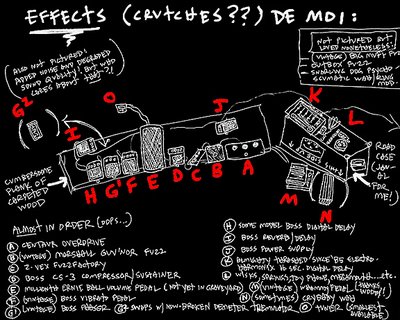 EFFECTS (CRUTCHES??) DE MOI:
(ALSO NOT PICTURED:
ADDED NOISE AND DEGRADED
SOUND QUALITY! BUT WHO
CARES ABOUT THAT?!)
NOT PICTURED BUT
LOVED NONETHELESS!
(VINTAGE) BIG MUFF FUZZ
OUTBOX FUZZ
SNARLING DOG PSYCHO
G2
O
J
K
L
I
ROAD
CASE
FOR
ME!)
CUMBERSOME
PLANK OF
CARPETED
WOOD
H G G' F E D C B A
M
N
ALMOST IN ORDER (OOPS...)
A CENTAUR OVERDRIVE
B (VINTAGE) MARSHALL GUV'NOR FUZZ
C Z.VEX FUZZ FACTORY
D BOSS CS-3 COMPRESSOR/SUSTAINER
E ERNIE BALL VOLUME PEDAL (NOT YET IN GRAVEYARD)
F (VINTAGE) BOSS VIBRATO PEDAL
G (VINTAGE) BOSS PHASER
G2 SWAPS W/ NOW-BROKEN DEMETER TREMULATOR
H SOME MODEL BOSS DIGITAL DELAY
I BOSS REVERB/DELAY
J BOSS POWER SUPPLY
K ELECTRO
HARMONIX 16 SEC. DIGITAL DELAY
L
M (VINTAGE)
N (SOMETIMES) CRYBABY WAH
O TUNER (SMALLEST
AVAILABLE)